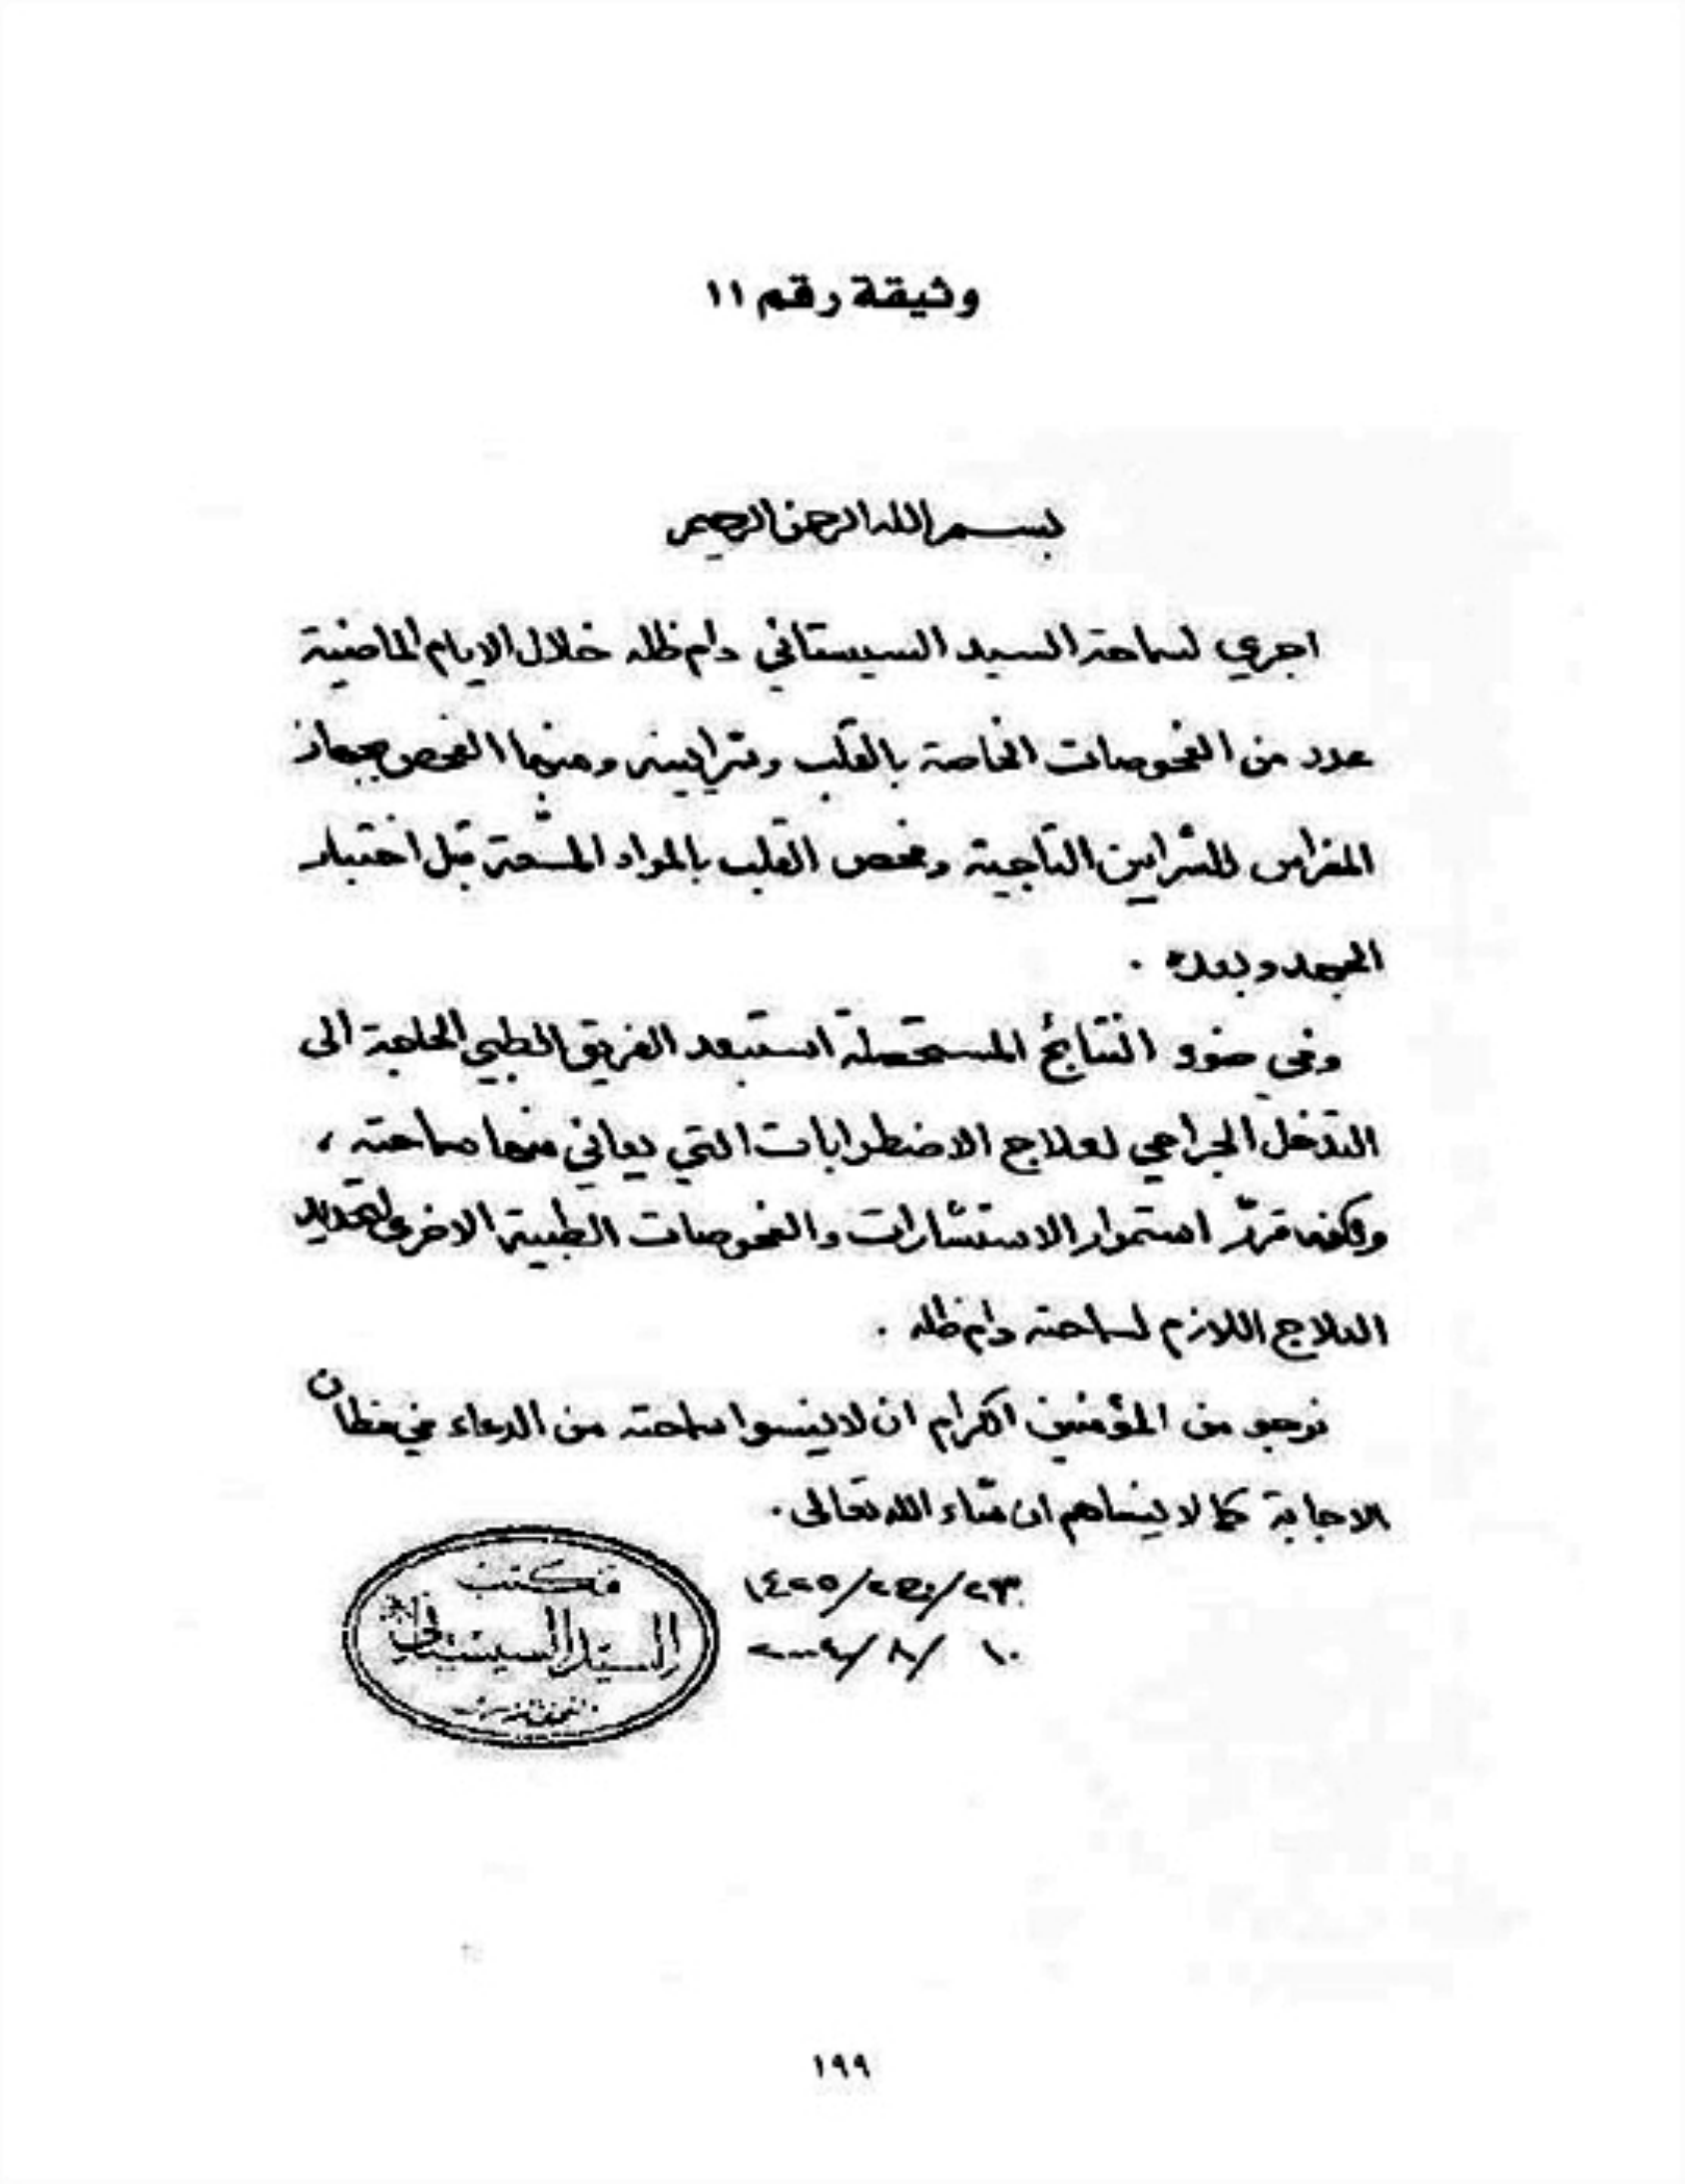 وثيقة رقم ١١
بسم الله الرحمن الرحيم
اجري لسماحة السيد السيستاني دام ظله خلال الايام الماضية
عدد من الفحوصات الخاصة بالقلب وشرايينه ومنها الفحص بجهاز
المفراس للشرايين التاجية وفحص القلب بالمواد المشعة قبل اختبار
الجهد وبعده .
وفي ضوء النتائج المستحصلة استبعد الفريق الطبي الحاجة الى
التدخل الجراحي لعلاج الاضطرابات التي يعاني منها سماحته ،
ولكنه قرّر استمرار الاستشارات والفحوصات الطبية الاخرى لتحديد
العلاج اللازم لسماحته دام ظله .
نرجو من المؤمنين الكرام ان لا ينسوا سماحته من الدعاء في مظان
الاجابة كما لا ينساهم ان شاء الله تعالى .
٢٣/ج٢/١٤٢٥
١٠ /٨/ ٢٠٠٤
مكتب
السيد السيستاني
١٩٩